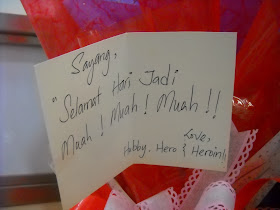 Sayang,
"Selamat Hari Jadi
Muah! Muah! Muah!!
Love,
Hobby. Hero & Heroin